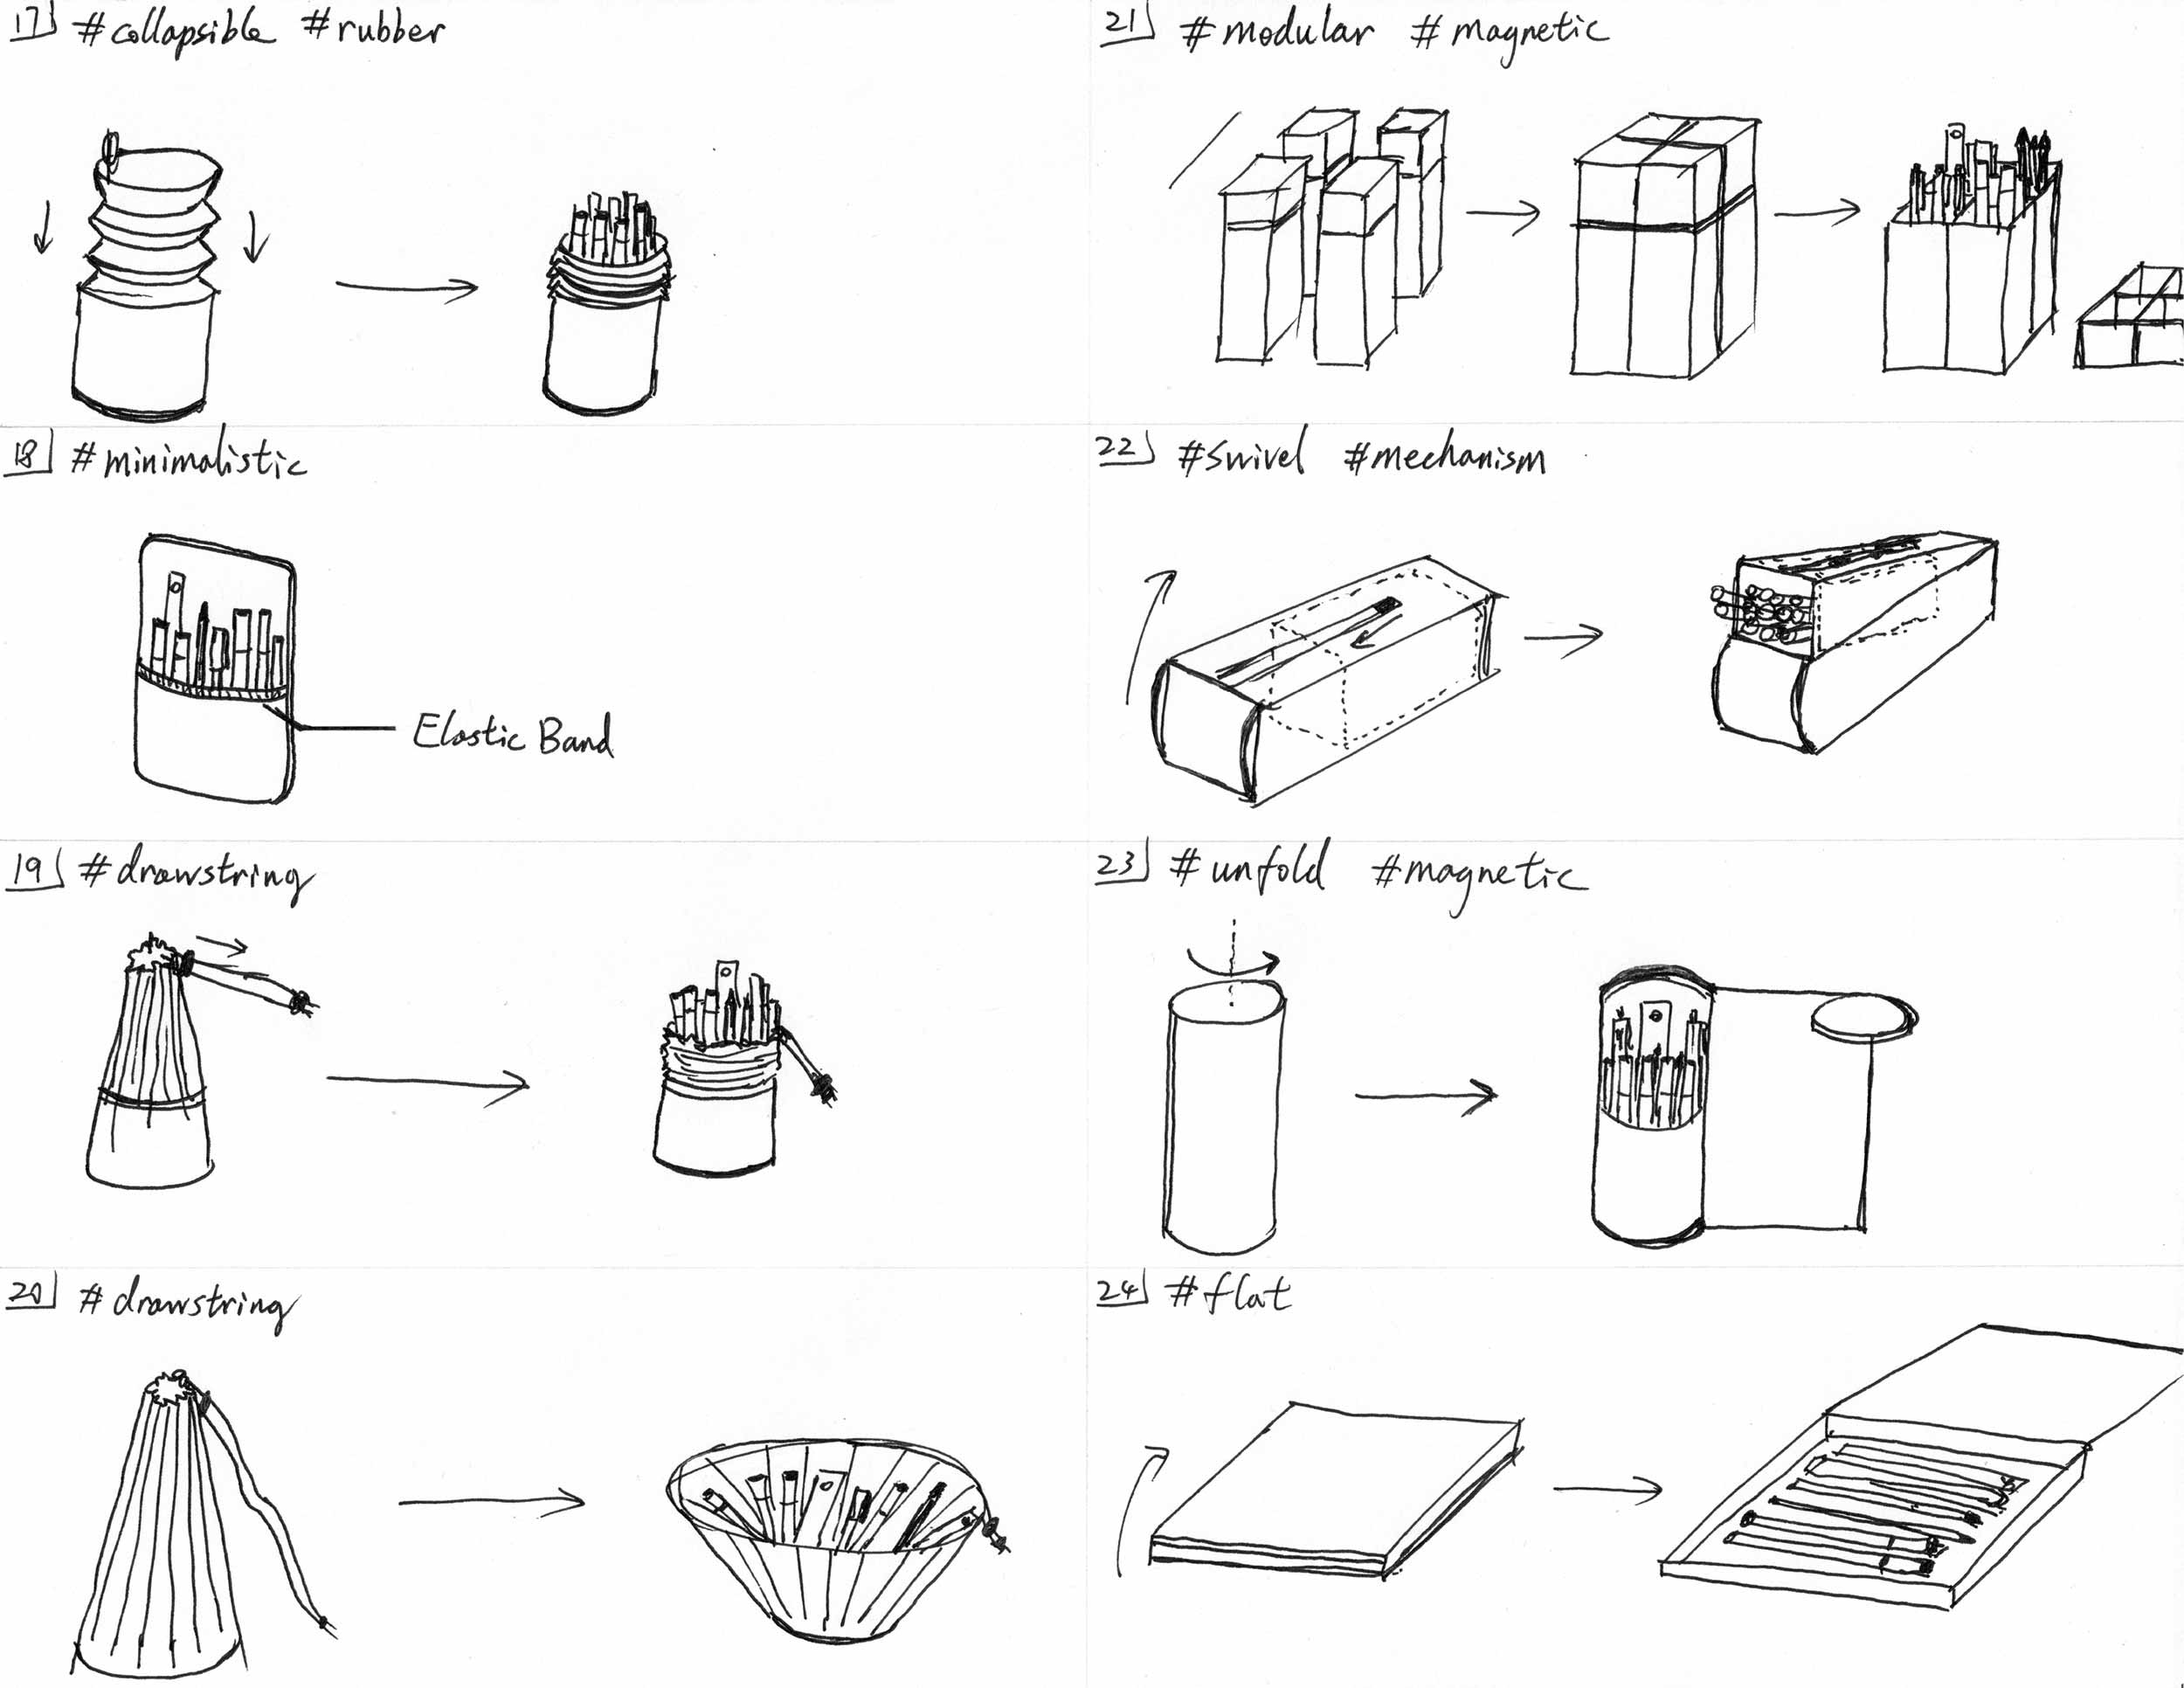 17 #collapsible #rubber
18 #minimalistic
Elastic Band
19 #drawstring
20 #drawstring
21 #modular #magnetic
22 #swivel #mechanism
23 #unfold #magnetic
24 #flat